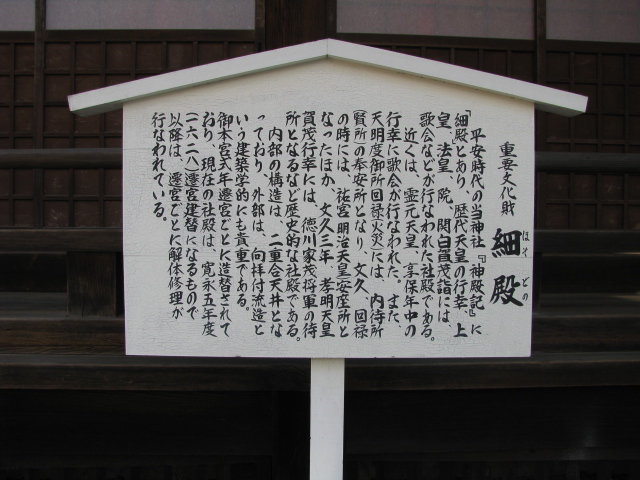 重要文化財
細殿
ほそどの
平安時代の当神社『神殿記』に
「細殿」とあり、歴代天皇の行幸、上
皇、法皇、院、関白賀茂詣には、
歌会などが行なわれた社殿である。
近くは、霊元天皇、享保年中の
行幸に歌会が行なわれた。また、
天明度御所回禄(火災)には、内侍所
(賢所)の奉安所となり、文久、回禄
の時には、祐宮明治天皇安座所と
なったほか、文久三年、孝明天皇
賀茂行幸には、徳川家茂将軍の待
所となるなど歴史的な社殿である。
内部の構造は、二重合天井とな
っており、外部は、向拝付流造と
いう建築学的にも貴重である。
御本宮式年遷宮ごとに造替されて
おり、現在の社殿は、寛永五年度
(一六二八)遷宮建替になるもので
以降は、遷宮ごとに解体修理が
行なわれている。